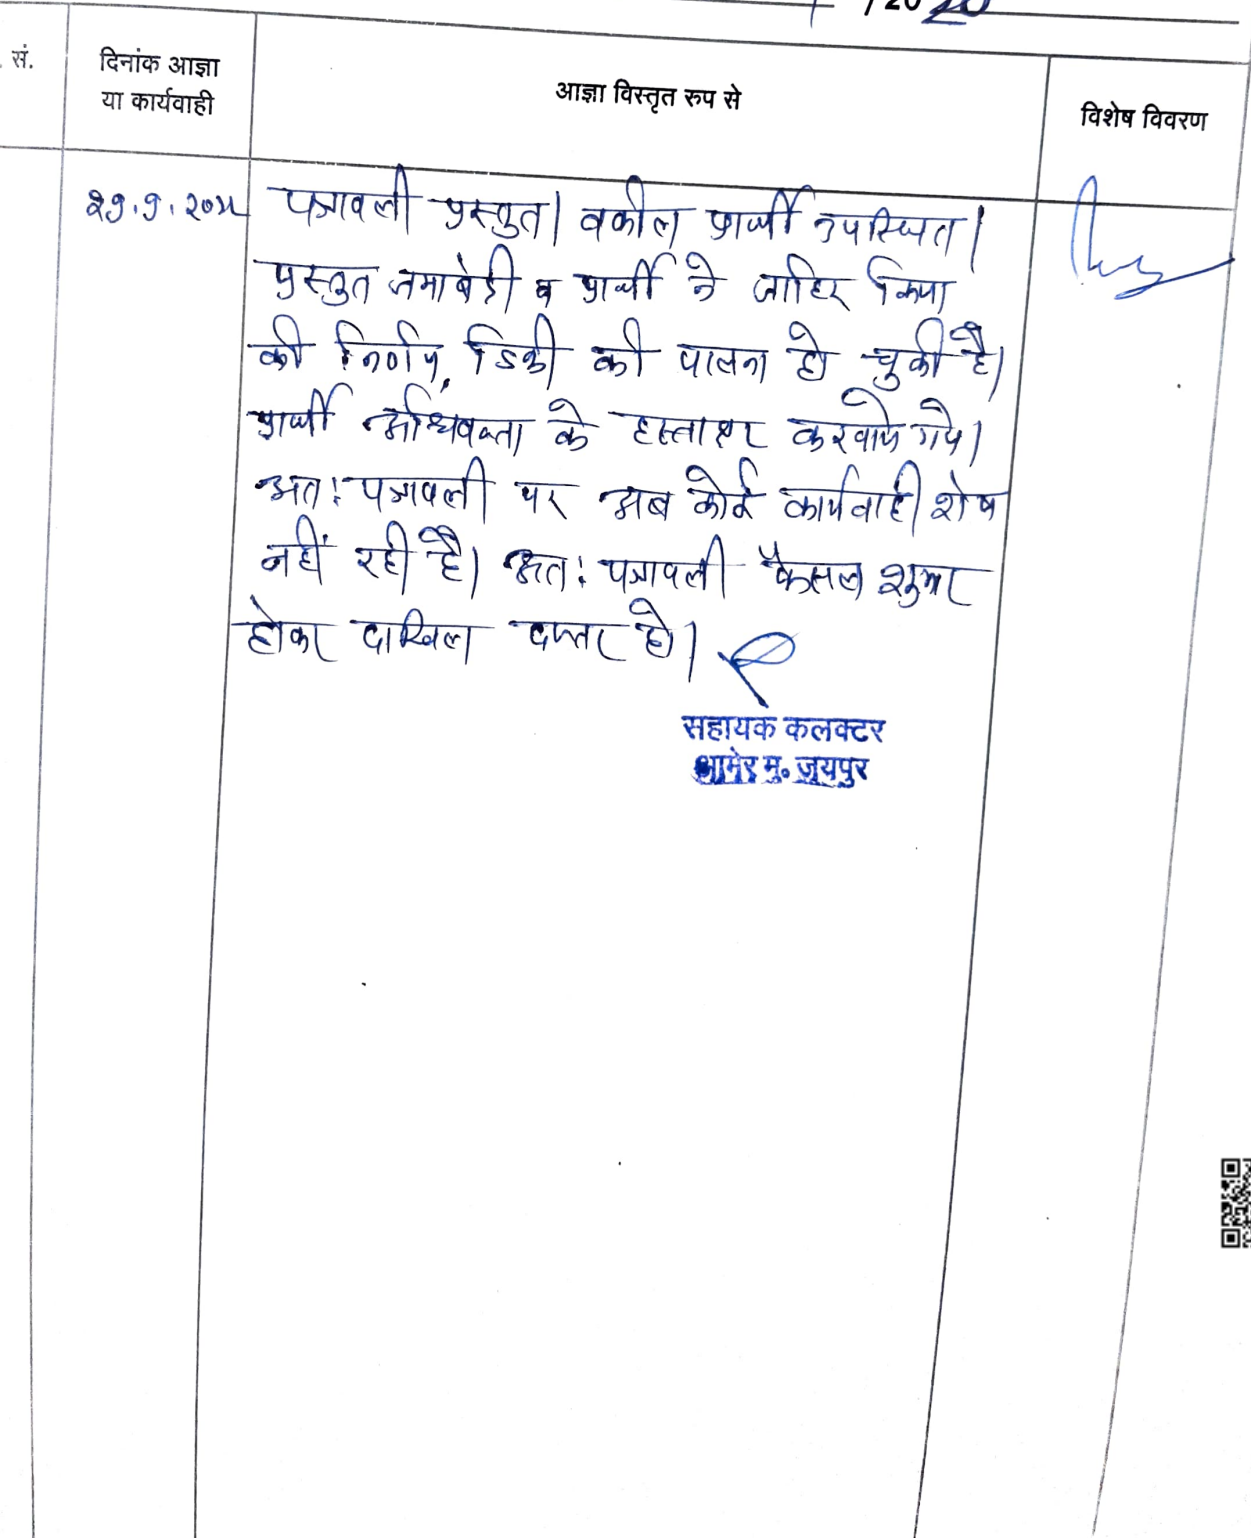 /20 20
सं.
दिनांक आज्ञा
या कार्यवाही
आज्ञा विस्तृत रूप से
विशेष विवरण
पत्रावली प्रस्तुत। वकील प्रार्थी उपस्थित।
प्रस्तुत जमाबंदी व प्रार्थी ने जाहिर किया
की निर्णय, डिक्री की पालना हो चुकी है।
प्रार्थी अधिवक्ता के हस्ताक्षर करवाये गये।
अतः पत्रावली पर अब कोई कार्यवाही शेष
नहीं रही है। अतः पत्रावली फैसल शुमार
होकर दाखिल दफ्तर हो।
सहायक कलक्टर
आमेर मु. जयपुर